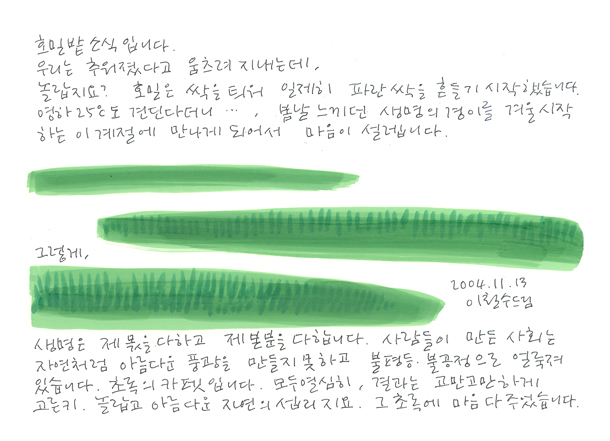 호밀밭 소식입니다.
우리는 추워졌다고 움츠려 지내는데,
놀랍지요? 호밀은 싹을 틔워 일제히 파란 싹을 흔들기 시작했습니다.
영하 25℃도 견딘다더니 …, 봄날 느끼던 생명의 경이를 겨울 시작
하는 이 계절에 만나게 되어서 마음이 설레입니다.
그렇게,
2004.11.13
이철수드림
생명은 제 몫을 다하고 제 본분을 다합니다. 사람들이 만든 사회는
자연처럼 아름다운 풍광을 만들지 못하고 불평등·불공정으로 얼룩져
있습니다. 초록의 카펫입니다. 모두 열심히, 결과는 고만고만하게
고른 키. 놀랍고 아름다운 자연의 섭리지요. 그 초록에 마음 다 주었습니다.